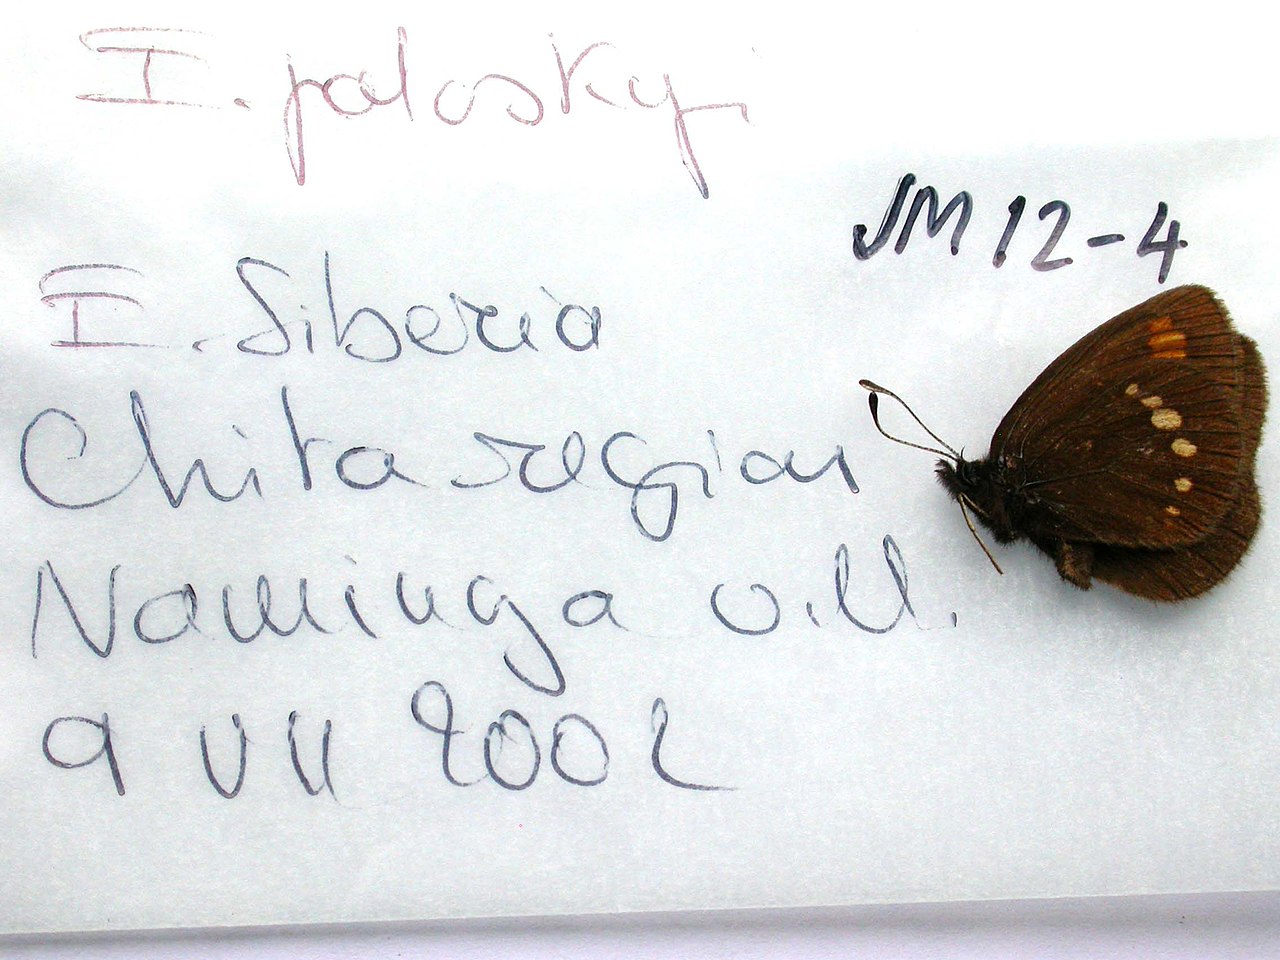 E. jaloskyi
JM 12-4
E. Siberia
Chita region
Naminga vill.
9 VII 2002